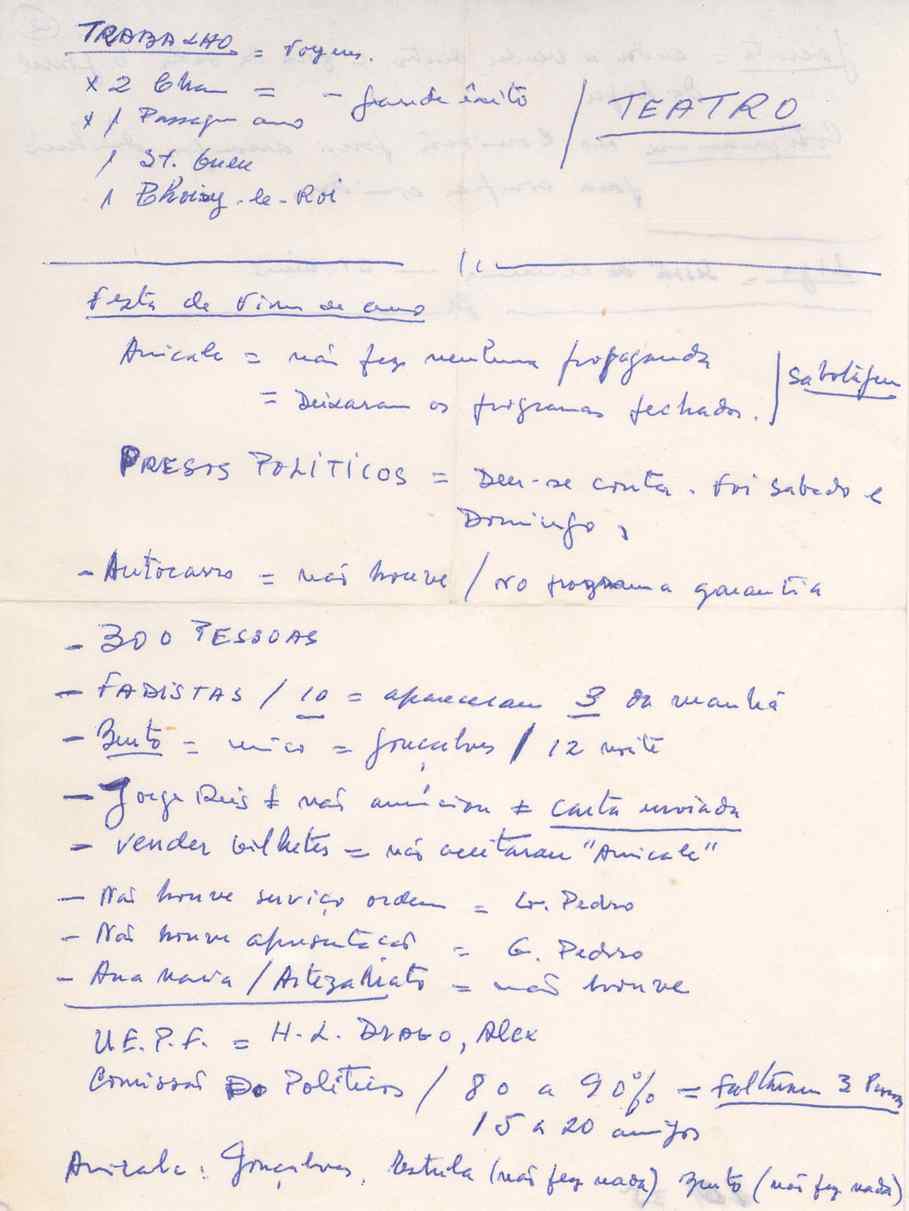 TRABALHO =
x 2 Cham = - grande êxito / TEATRO
x 1 Passagem ano
1 St. Ouen
1 Choisy-le-Roi
Festa de Fim de ano
Amicale = não fez nenhuma propaganda
= Deixaram os programas fechados. | Sabotagem
PRESOS POLÍTICOS = Deu-se conta. Foi sabado e
Domingo,
- Autocarro = não houve / No programa garantia
- 300 PESSOAS
- FADISTAS / 10 = apareceram 3 da manhã
- = único = Gonçalves / 12 noite
- Jorge Reis ≠ não anunciou ≠ carta enviada
- Vender bilhetes = não aceitaram "Amicale"
- Não houve serviço ordem = G. Pedro
- Não houve apresentação = G. Pedro
- Ana Maria / Artezanato = não houve
U.E.P.F. = H. L. DRAGO, Alex
Comissão Do Politicos / 80 a 90% = Faltaram 3
15 a 20 amigos
Amicale: Gonçalves, (não fez nada) (não fez nada)